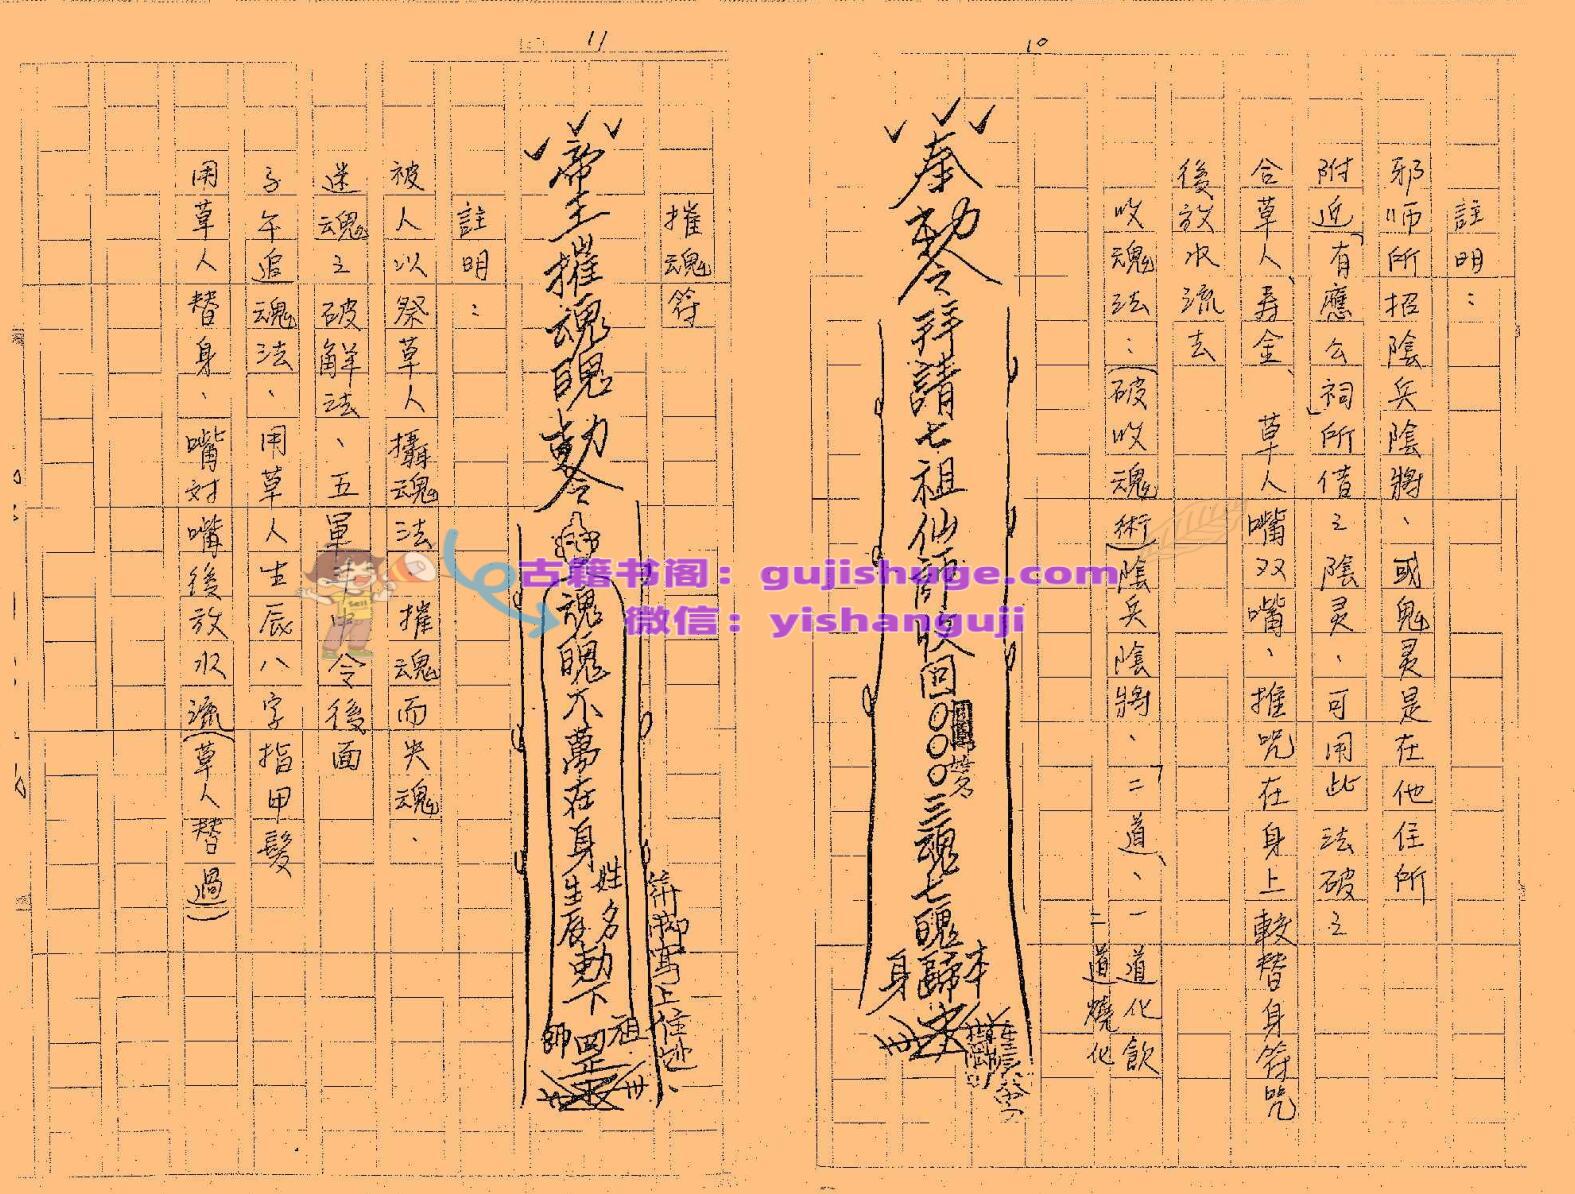 10
註明：
邪师所招陰兵陰將、或鬼灵是在他住所
附近「有應公祠」所借之陰灵、可用此法破之
合草人、寿金、草人嘴双嘴、推咒在身上較替身符咒
後放水流去
收魂法：(破收魂術)陰兵陰將、「二道、一道化飲
二道燒化
奉勅令拜請七祖仙師收回〇〇〇三魂七魄歸本身
11
摧魂符
符腳寫上住址、
帝王摧魂魄勅令
魂魄不萬在身
姓名
生辰
勅下
祖師
罡
註明：
被人以祭草人攝魂法、摧魂而失魂、
迷魂之破解法、五軍
令後面
子午追魂法、用草人生辰八字指甲髮
用草人替身、嘴対嘴後放水流(草人替過)
古籍书阁：gujishuge.com
微信：yishanguji